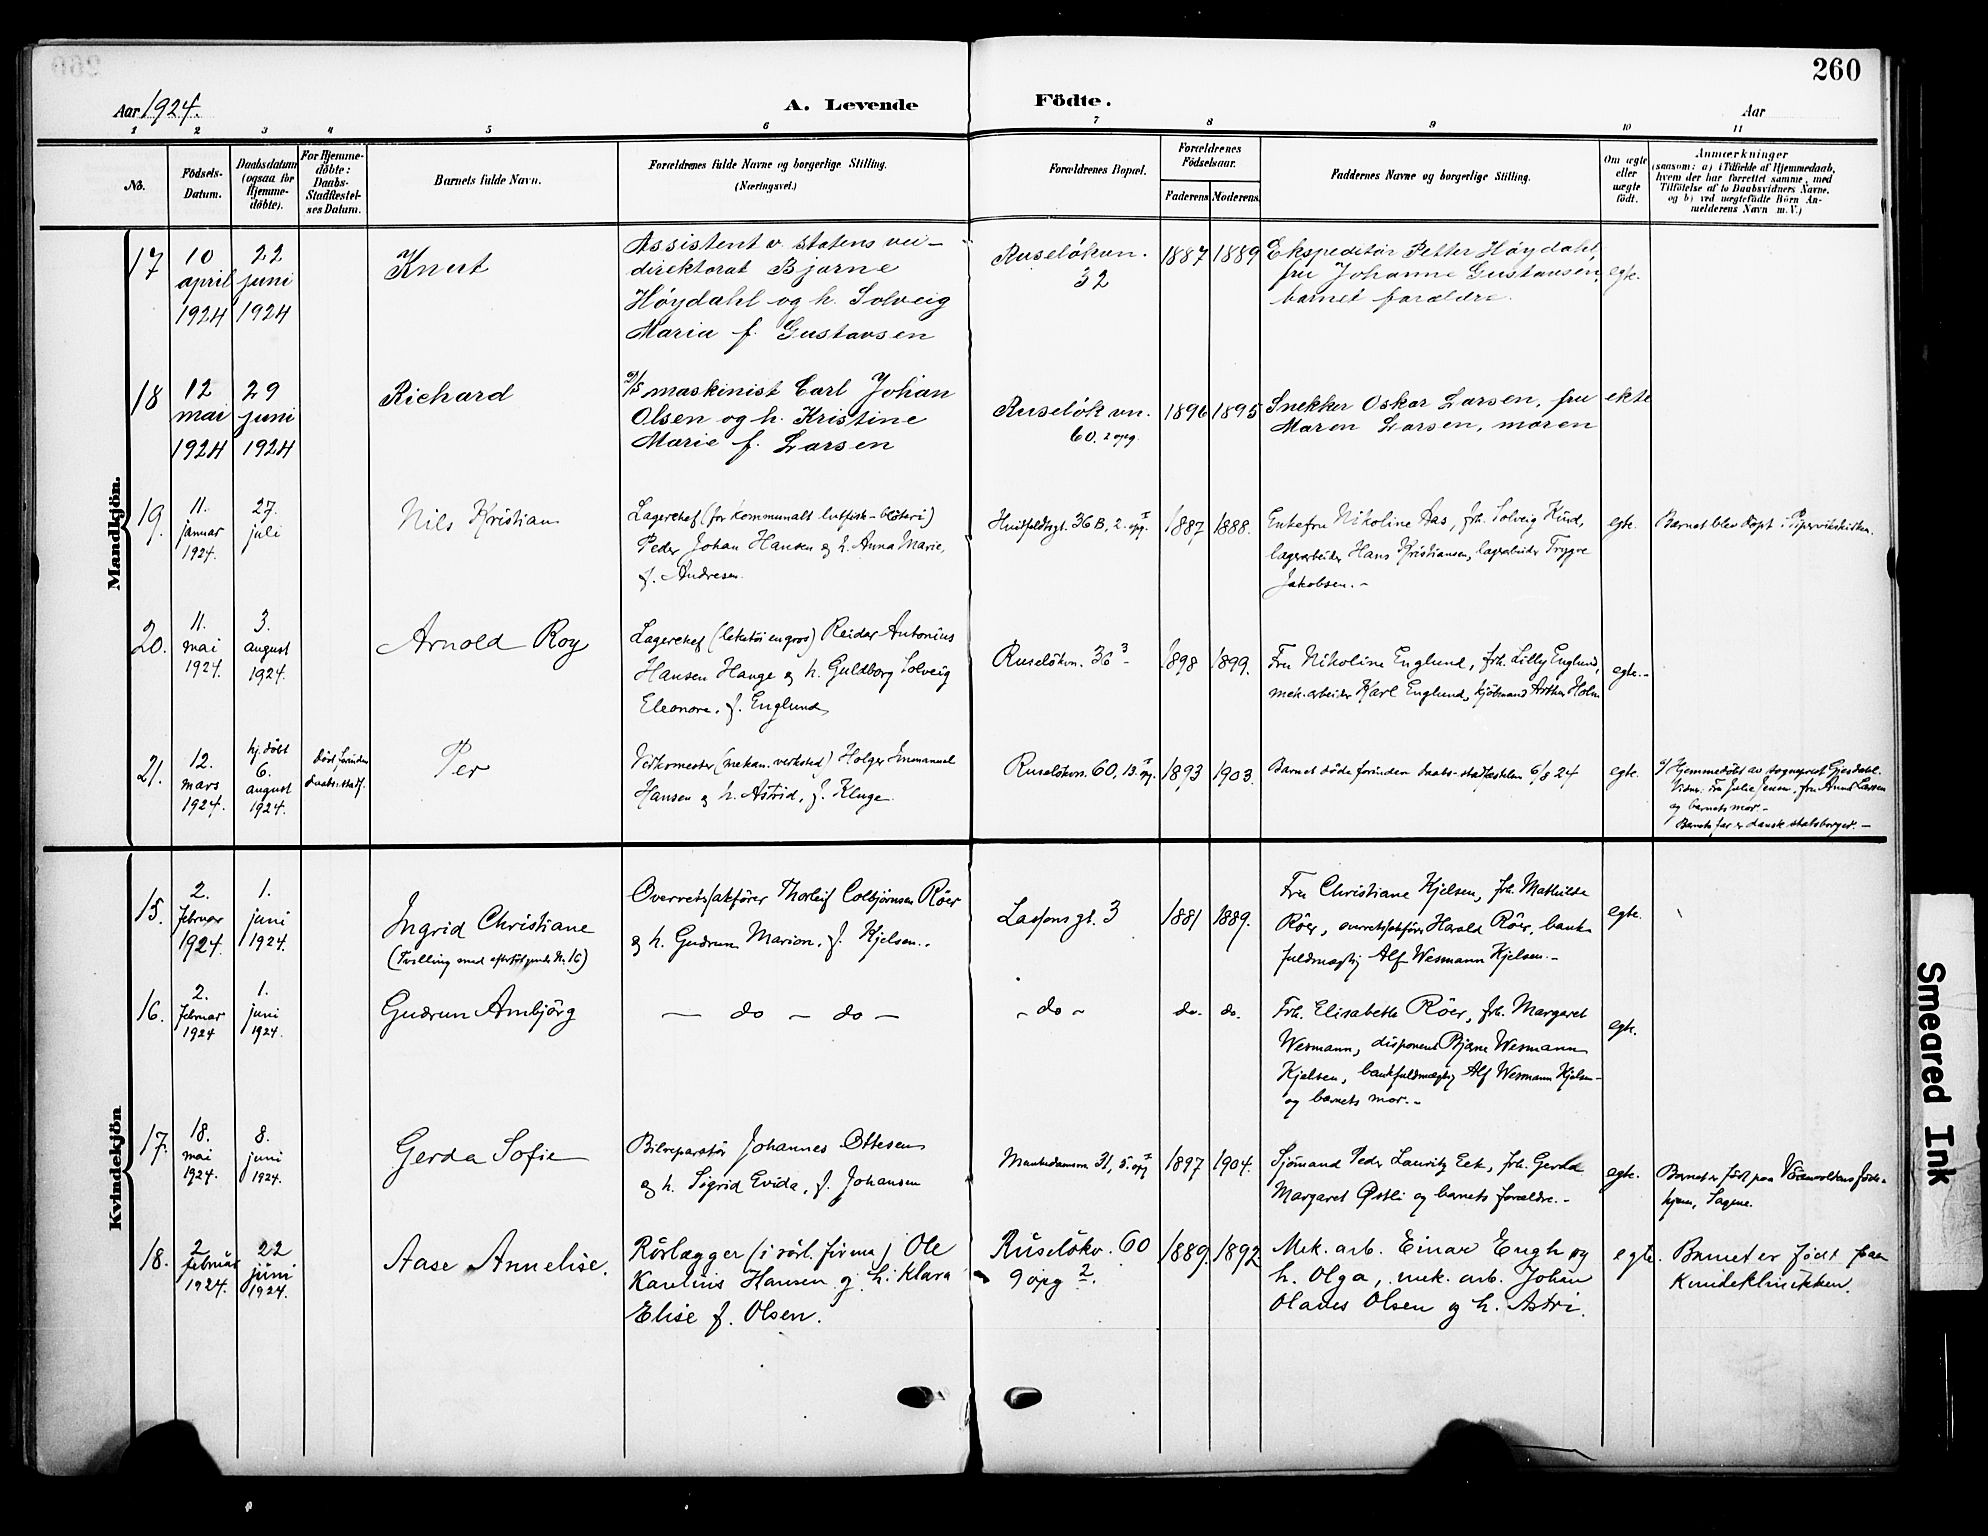 260
Aar 1924.
A. Levende Födte.
Aar
1 2 3 4 5 6 7 8 9 10 11
No.
Födsels-
Datum.
Daabsdatum
(ogsaa for
Hjemme-
döbte).
For Hjemme-
döbte:
Daabs-
Stadfæstel-
ses Datum.
Barnets fulde Navn.
Forældrenes fulde Navne og borgerlige Stilling.
(Næringsvei.)
Forældrenes Bopæl.
Forældrenes
Födselsaar.
Faderens Moderens
Faddernes Navne og borgerlige Stilling.
Om ægte
eller
uægte
födt.
Anmærkninger
(saasom: a) i Tilfælde af Hjemmedaab,
hvem der har forrettet samme, med
Tilföielse af to Daabsvidners Navne,
og b) ved uægtefödte Börn An-
melderens Navn m. V.)
Mandkjön.
17
10
april
1924
22
juni
1924
Knut
Assistent v. statens vei-
direktorat Bjarne
Höydahl og h. Solveig
Maria f. Gustavsen
Ruselökvn.
32
1887
1889
Ekspeditör Petter Höydahl,
fru Johanne Gustavsen,
barnet forældre.
egte.
18
12
mai
1924
29
juni
1924
Richard
maskinist Carl Johan
Olsen og h. Kristine
Marie f. Larsen
Ruselökvn.
60. 2 opg.
1896
1895
Snekker Oskar Larsen, fru
Maren Larsen, moren
ekte
19.
11.
januar
1924.
27.
juli
Nils Kristian
Lagerchef (for kommunalt lutfisk-blöteri)
Peder Johan Hansen & h. Anna Marie,
f. Andresen.
Huitfeldtsgt. 36 B, 2. opg. I
1887
1888.
Enkefru Nikoline Aas, frk. Solveig
lagerarbeider Hans Kristiansen, lagerarbeider Trygve
Jakobsen.-
egte.
Barnet blev döpt i Pipervikskirken.
20.
11.
mai
1924.
3.
august
1924.
Arnold Roy
Lagerchef (leketöi engros) Reidar Antonius
Hansen Hauge & h. Guldborg Solveig
Eleonora, f. Englund
Ruselökvn. 36 3
1898
1899.
Fru Nikoline Englund, frk. Lilly Englund,
mek. arbeider Karl Englund, kjöbmand Arthur Holm
egte.-
21.
12.
mars
1924.
hj. döbt
6.
august
1924.
död forinden
daabs.stadf.
Per
Verkmester (mekan. verksted) Holger Immanuel
Hansen & h. Astrid, f. Kluge
Ruselökvn. 60, 13. opg. I
1893
1903.
Barnet döde forinden daabs-stadfæstelsen 6/8 24
egte.
Hjemmedöbt av sogneprest Gjesdahl.
Vidner: Fru Julie Jensen, fru Anna Larsen
og barnets mor.-
Barnets far er dansk statsborger.-
Kvindekjön
15.
2.
februar
1924.
1.
juni
1924.
Ingrid Christiane
(Tvilling med efterfölgende Nr. 16)
Overretssakförer Thorleif Colbjörnsen Röer
& h. Gudrun Marion, f. Kjelsen.
Lassonsgt. 3
1881
1889.
Fru Christiane Kjelsen, frk. Mathilde
Röer, overretssakförer Harald Röer, bank-
fuldmægtig Alf Wesmann Kjelsen.-
egte.
16.
2.
februar
1924
1.
juni
1924.
Gudrun Arnbjörg
— do — do —
- do -
do.
do.
Frk. Elisabeth Röer, frk. Margaret
Wesmann, disponent Bjarne Wesmann
Kjelsen, bankfuldmægtig Alf Wesmann Kjelsen-
og barnets mor.-
egte.
17.
18.
mai
1924.
8.
juni
1924.
Gerda Sofie
Bilreparatör Johannes Ottesen
& h. Sigrid Evida, f. Johansen
Munkedamsvn 31, 5. opg. I
1897
1904.
Sjömand Peder Lauritz Eek, frk. Gerda
Margaret Östli og barnets forældre.-
egte.
Barnet er födt paa föde-
hjem, Sagene.
18.
2
februar
1924.
22
juni
1924.
Aase Annelise.
Rörlægger (i rörl. firma) Ole
Karelius Hansen og h. Klara
Elise f. Olsen.
Ruselökv. 60
9 opg 2.
1889.
1892
Mek. arb. Einar Engh og
h. Olga, mek. arb. Johan
Olaves Olsen og h. Astri.
egte.
Barnet er födt paa
Kvindeklinikken.
Smeared Ink